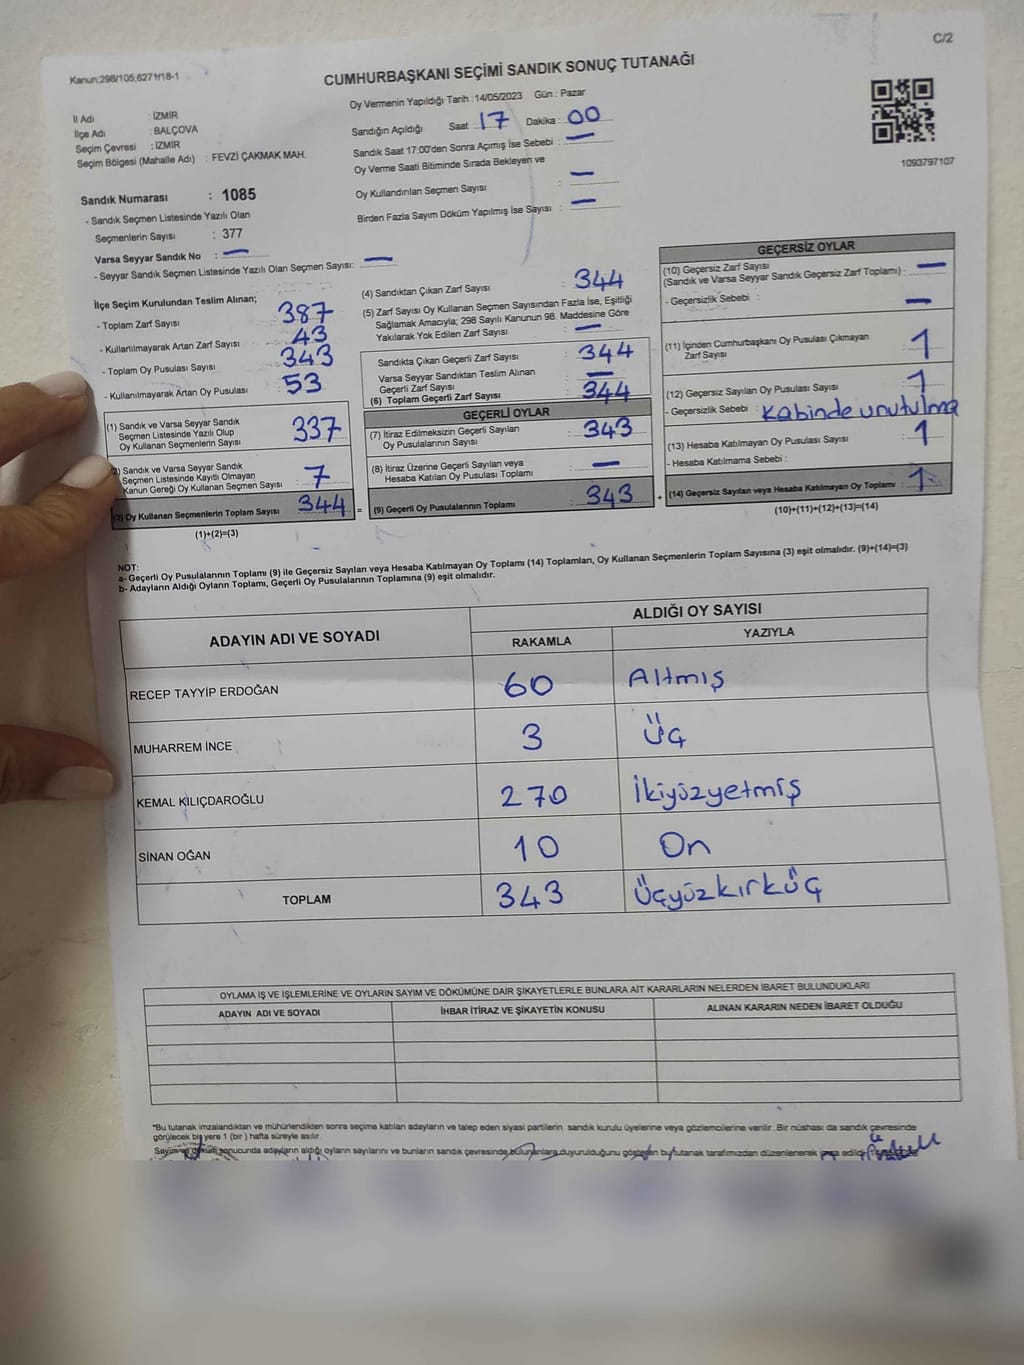 C/2
Kanun;298/105;6271/18-1
CUMHURBAŞKANI SEÇİMİ SANDIK SONUÇ TUTANAĞI
Oy Vermenin Yapıldığı Tarih :14/05/2023 Gün : Pazar
İl Adı : İZMİR
İlçe Adı : BALÇOVA
Seçim Çevresi : İZMİR
Seçim Bölgesi (Mahalle Adı) : FEVZİ ÇAKMAK MAH.
Sandığın Açıldığı Saat : 17 Dakika : 00
Sandık Saat 17:00'den Sonra Açılmış İse Sebebi : —
Oy Verme Saati Bitiminde Sırada Bekleyen ve
Oy Kullandırılan Seçmen Sayısı : —
Birden Fazla Sayım Döküm Yapılmış İse Sayısı : —
1093797107
Sandık Numarası : 1085
- Sandık Seçmen Listesinde Yazılı Olan
Seçmenlerin Sayısı : 377
Varsa Seyyar Sandık No : —
- Seyyar Sandık Seçmen Listesinde Yazılı Olan Seçmen Sayısı: —
İlçe Seçim Kurulundan Teslim Alınan;
- Toplam Zarf Sayısı : 387
- Kullanılmayarak Artan Zarf Sayısı : 43
- Toplam Oy Pusulası Sayısı : 343
- Kullanılmayarak Artan Oy Pusulası : 53
(1) Sandık ve Varsa Seyyar Sandık
Seçmen Listesinde Yazılı Olup
Oy Kullanan Seçmenlerin Sayısı : 337
Sandık ve Varsa Seyyar Sandık
Seçmen Listesinde Kayıtlı Olmayan
Kanun Gereği Oy Kullanan Seçmen Sayısı : 7
(3) Oy Kullanan Seçmenlerin Toplam Sayısı : 344 =
(1)+(2)=(3)
(4) Sandıktan Çıkan Zarf Sayısı : 344
(5) Zarf Sayısı Oy Kullanan Seçmen Sayısından Fazla İse, Eşitliği
Sağlamak Amacıyla; 298 Sayılı Kanunun 98. Maddesine Göre
Yakılarak Yok Edilen Zarf Sayısı : —
Sandıkta Çıkan Geçerli Zarf Sayısı : 344
Varsa Seyyar Sandıktan Teslim Alınan
Geçerli Zarf Sayısı : —
(6) Toplam Geçerli Zarf Sayısı : 344
GEÇERLİ OYLAR
(7) İtiraz Edilmeksizin Geçerli Sayılan
Oy Pusulalarının Sayısı : 343
(8) İtiraz Üzerine Geçerli Sayılan veya
Hesaba Katılan Oy Pusulası Toplamı : —
(9) Geçerli Oy Pusulalarının Toplamı : 343 +
GEÇERSİZ OYLAR
(10) Geçersiz Zarf Sayısı
(Sandık ve Varsa Seyyar Sandık Geçersiz Zarf Toplamı) : —
- Geçersizlik Sebebi : —
(11) İçinden Cumhurbaşkanı Oy Pusulası Çıkmayan
Zarf Sayısı : 1
(12) Geçersiz Sayılan Oy Pusulası Sayısı : 1
- Geçersizlik Sebebi : Kabinde unutulma
(13) Hesaba Katılmayan Oy Pusulası Sayısı : 1
- Hesaba Katılmama Sebebi :
(14) Geçersiz Sayılan veya Hesaba Katılmayan Oy Toplamı : 1
(10)+(11)+(12)+(13)=(14)
NOT:
a- Geçerli Oy Pusulalarının Toplamı (9) ile Geçersiz Sayılan veya Hesaba Katılmayan Oy Toplamı (14) Toplamları, Oy Kullanan Seçmenlerin Toplam Sayısına (3) eşit olmalıdır. (9)+(14)=(3)
b- Adayların Aldığı Oyların Toplamı, Geçerli Oy Pusulalarının Toplamına (9) eşit olmalıdır.
ADAYIN ADI VE SOYADI ALDIĞI OY SAYISI
RAKAMLA YAZIYLA
RECEP TAYYİP ERDOĞAN 60 Altmış
MUHARREM İNCE 3 Üç
KEMAL KILIÇDAROĞLU 270 İkiyüzyetmiş
SİNAN OĞAN 10 On
TOPLAM 343 Üçyüzkırküç
OYLAMA İŞ VE İŞLEMLERİNE VE OYLARIN SAYIM VE DÖKÜMÜNE DAİR ŞİKAYETLERLE BUNLARA AİT KARARLARIN NELERDEN İBARET BULUNDUKLARI
ADAYIN ADI VE SOYADI İHBAR İTİRAZ VE ŞİKAYETİN KONUSU ALINAN KARARIN NEDEN İBARET OLDUĞU
*Bu tutanak imzalandıktan ve mühürlendikten sonra seçime katılan adayların ve talep eden siyasi partilerin sandık kurulu üyelerine veya gözlemcilerine verilir. Bir nüshası da sandık çevresinde
görülecek bir yere 1 (bir) hafta süreyle asılır.
Sayım ve dökümü sonucunda adayların aldığı oyların sayılarını ve bunların sandık çevresinde bulunanlara duyurulduğunu gösteren bu tutanak tarafımızdan düzenlenerek imza edildi.